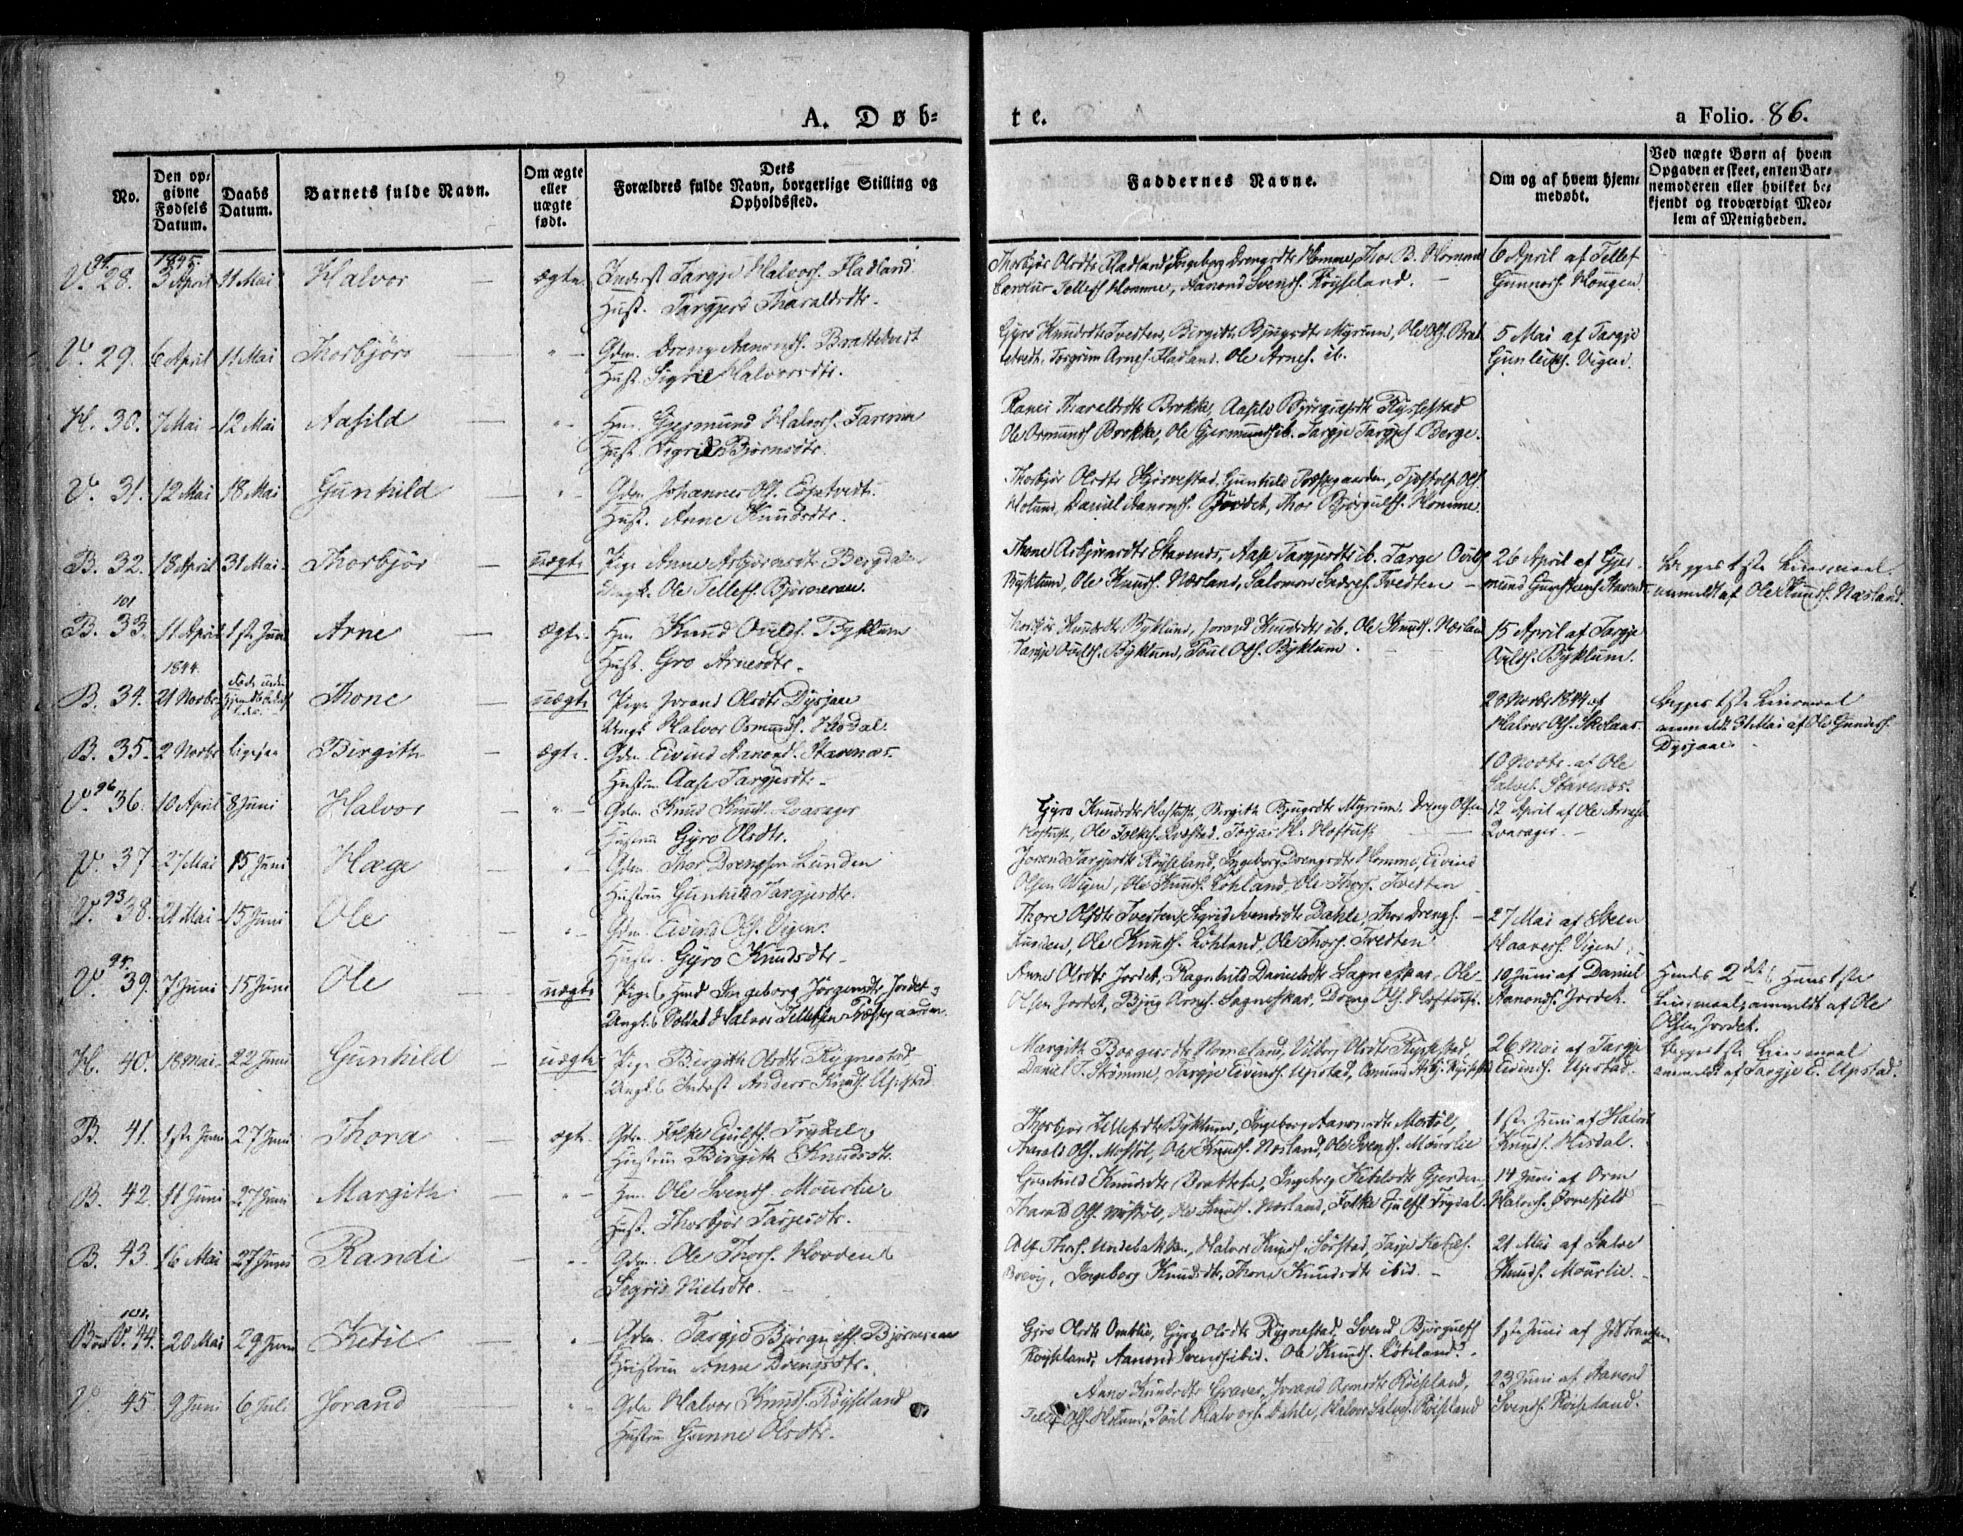 A. Døb-
te.
a Folio. 86.
No.
Den op-
givne
Fødsels
Datum.
Daabs
Datum.
Barnets fulde Navn.
Om ægte
eller
uægte
født.
Dets
Forældres fulde Navn, borgerlige Stilling og
Opholdssted.
Faddernes Navne.
Om og af hvem hjem-
medøbt.
Ved uægte Børn af hvem
Opgaven er skeet, enten Bar-
nemoderen eller hvilket be-
kjendt og troværdigt Med-
lem af Menigheden.
1845.
V. 28. 3 April 11 Mai Halvor ægte Inderst Targje Halvors. Fladland
Hust. Targjerd Tharaldsdtr.
Thorbjør Olsdtr Fladland, Ingeborg Drengsdtr Homme, Thor B. Homme
Tellefs. Homme, Aanond Svends. Röyseland.
6 April af Tellef
Gunnars. Hougen.
V. 29. 6 April 11 Mai Thorbjörn Gdm. Dreng Aanonds. Brattetveit
Hust. Sigrid Halvorsdtr.
Gyro Knudsdtr Tveten, Birgith Bjugsdtr Myrum, Ole Ols. Brat
tetvedt. Torgrim Arnes. Fladland. Ole Arnes. ib.
5 Mai af Targje
Gunleiks. Vigen.
H. 30. 7 Mai 12 Mai Aasild Hm. Gjermund Halvors.
Hust. Sigrid Bjørnsdtr.
Ranei Tharaldsdtr Brokke, Aasild Björgulfsdtr Rysstad
Ole Osmunds. Brokke, Ole Gjermunds. ib. Targje Targjes. Berge.
V. 31. 12 Mai 18 Mai Gunhild Gdm. Johannes Ols.
Hust. Anne Knudsdtr.
Thorbjör Olsdtr Kjörvestad, Gunhild Præstegaarden, Tjostolf Ols.
Daniel Aanonds. Jordet, Thor Björgulfs. Homme.
B. 32. 18 April 31 Mai Thorbjör uægte Pige Anne Asbjörnsdtr Bergdalen
Ungk. Ole Tellefs. Björnaraa.
Thone Asbjörnsdtr Stavenes, Aase Targjersdtr ib. Targe Ovids.
Byklum, Ole Knuds. Næsland, Salomon Tvedten
26 April af Gjer-
mund Stavenes
Begges 1ste Leiermaal
anmeldt af Ole Knuds. Næsland.
101
B. 33. 11 April 1ste Juni Arne ægte Hm Knud Ovids. Byklum
Hust. Gro Arnesdtr.
Thorbjör Knudsdtr Byklum, Jorand Knudsdtr ib. Ole Knuds. Næsland
Targje Ovids. Byklum, Poul Ols. Byklum.
15 April af Targje
Ovids. Byklum.
1844.
B. 34. 21 Novbr Thone uægte Pige Jorand Olsdtr Dysjaae
Ungk. Halvor Osmunds. Hisdal.
28 Novbr 1844 af
Halvor Ols.
Begges 1ste Leiermaal
anmeldt 31 Mai af Ole Gunders.
Dysjaae.
B. 35. 2 Novbr ligesaa Birgith ægte Gdm. Eivind Aanonds. Stavenes.
Hustru Aase Targjersdtr
10 Novbr. af Ole
Salves. Stavenes.
V. 36. 10 April 8 Juni Halvor Gdm. Knud Knuds. Qvarager
Hustru Gyro Olsdtr.
Gyro Knudsdtr Hoftuft, Birgith Bjugsdtr Myrum, Dreng Olsen
Hoftuft, Ole Folkes. Torjus H. Hoftuft
12 April af Ole Arnes.
Qvarager.
V. 37 27 Mai 15 Juni Hæge Gdm. Thor Drengsen Lunden
Hustru Gunhild Targjersdtr.
Jorand Targjersdtr Röyseland, Ingeborg Drengsdtr Homme, Eivind
Olsen Vigen, Ole Knuds. Löhland, Ole Thors. Tvedten
V. 38. 21 Mai 15 Juni Ole Gdm. Eivind Ols. Vigen.
Hustr. Gyro Knudsdtr
Thore Olsdtr Tvedten, Sigrid Svendsdtr Dahle, Thor Drengs.
Lunden, Ole Knuds. Löhland, Ole Thors. Tvedten
27 Mai af Steen
Haavors. Vigen.
95.
V. 39. 7 Juni 15 Juni Ole uægte Pige Ingeborg Jörgensdtr Jordet
Ungk. Soldat Halvor Tellefsen Præstegaarden.
Anne Olsdtr Jordet, Ragnhild Danielsdtr Lagneskar, Ole
Olsen Jordet, Bjug Arnes. Lagneskar, Dreng Ols. Hoftuft.
10 Juni af Daniel
Aanonds. Jordet.
Hendes 2det, Hans 1ste
Leiermaal, anmeldt af Ole
Olsen Jordet.
H. 40. 18 Mai 22 Juni Gunhild uægte Pige Birgith Olsdtr Rygnestad
Ungk. Inderst Anders Knuds. Upstad
Margith Borgersdtr Nomeland, Vilborg Olsdtr Rysstad
Daniel T. Strömme, Targje Eivinds. Upstad, Osmund
26 Mai af Targje
Eivinds. Upstad.
Begges 1ste Leiermaal
anmeldt af Targje E. Upstad.
B. 41. 1ste Juni 27 Juni Thora ægte Gdm. Folke Eyulfs. Trydal
Hustru Birgith Knudsdtr.
Thorbjör Tellefsdtr Byklum, Ingeborg Aanonsdtr Mostöl,
Tharald Ols. Mostöl, Ole Knuds. Næsland, Ole Svends. Mourlie
1ste Juni af Halvor
Knuds. Hisdal.
B. 42. 11 Juni 27 Juni Margith Hm. Ole Svends. Mourlie
Hust. Thorbjör Tarjersdtr.
Gunhild Knudsdtr Bratteli, Ingeborg Ketilsdtr Gjerden
Tharald Ols. Mostöl, Ole Knuds. Næsland, Folke Eyulfs. Trydal
14 Juni af Orm
Halvors. Ørnefjeld
B. 43. 16 Mai 27 Juni Randi Gdm. Ole Thors. Hovden
Sigrid Nielsdtr.
Thors. Halvor Knuds. Tarje Ketils.
Ingeborg Knudsdtr, Thone Knudsdtr ibid.
21 Mai af Salve
Knuds. Mourlie.
44. 20 Mai 29 Juni Ketil Gdm. Targje Björgulfs. Björnaraa
Hustru Anne Drengsdtr.
Gyro Olsdtr Omlie, Gyro Olsdtr Rygnestad, Svend Björgulfs.
Röyseland, Aanond Svends. ibid. Ole Knuds. Löhland.
1ste Juni af
V. 45. 9 Juni 6 Juli Jorand Gdm Halvor Knuds. Röysland
Hustru Gunne Olsdtr.
Anne Knudsdtr Graver, Jorand Arnesdtr Röisland,
Tellef Ols. Poul Halvors. Dahle, Halvor Salves. Röisland
23 Juni af Aanond
Svends. Röisland.